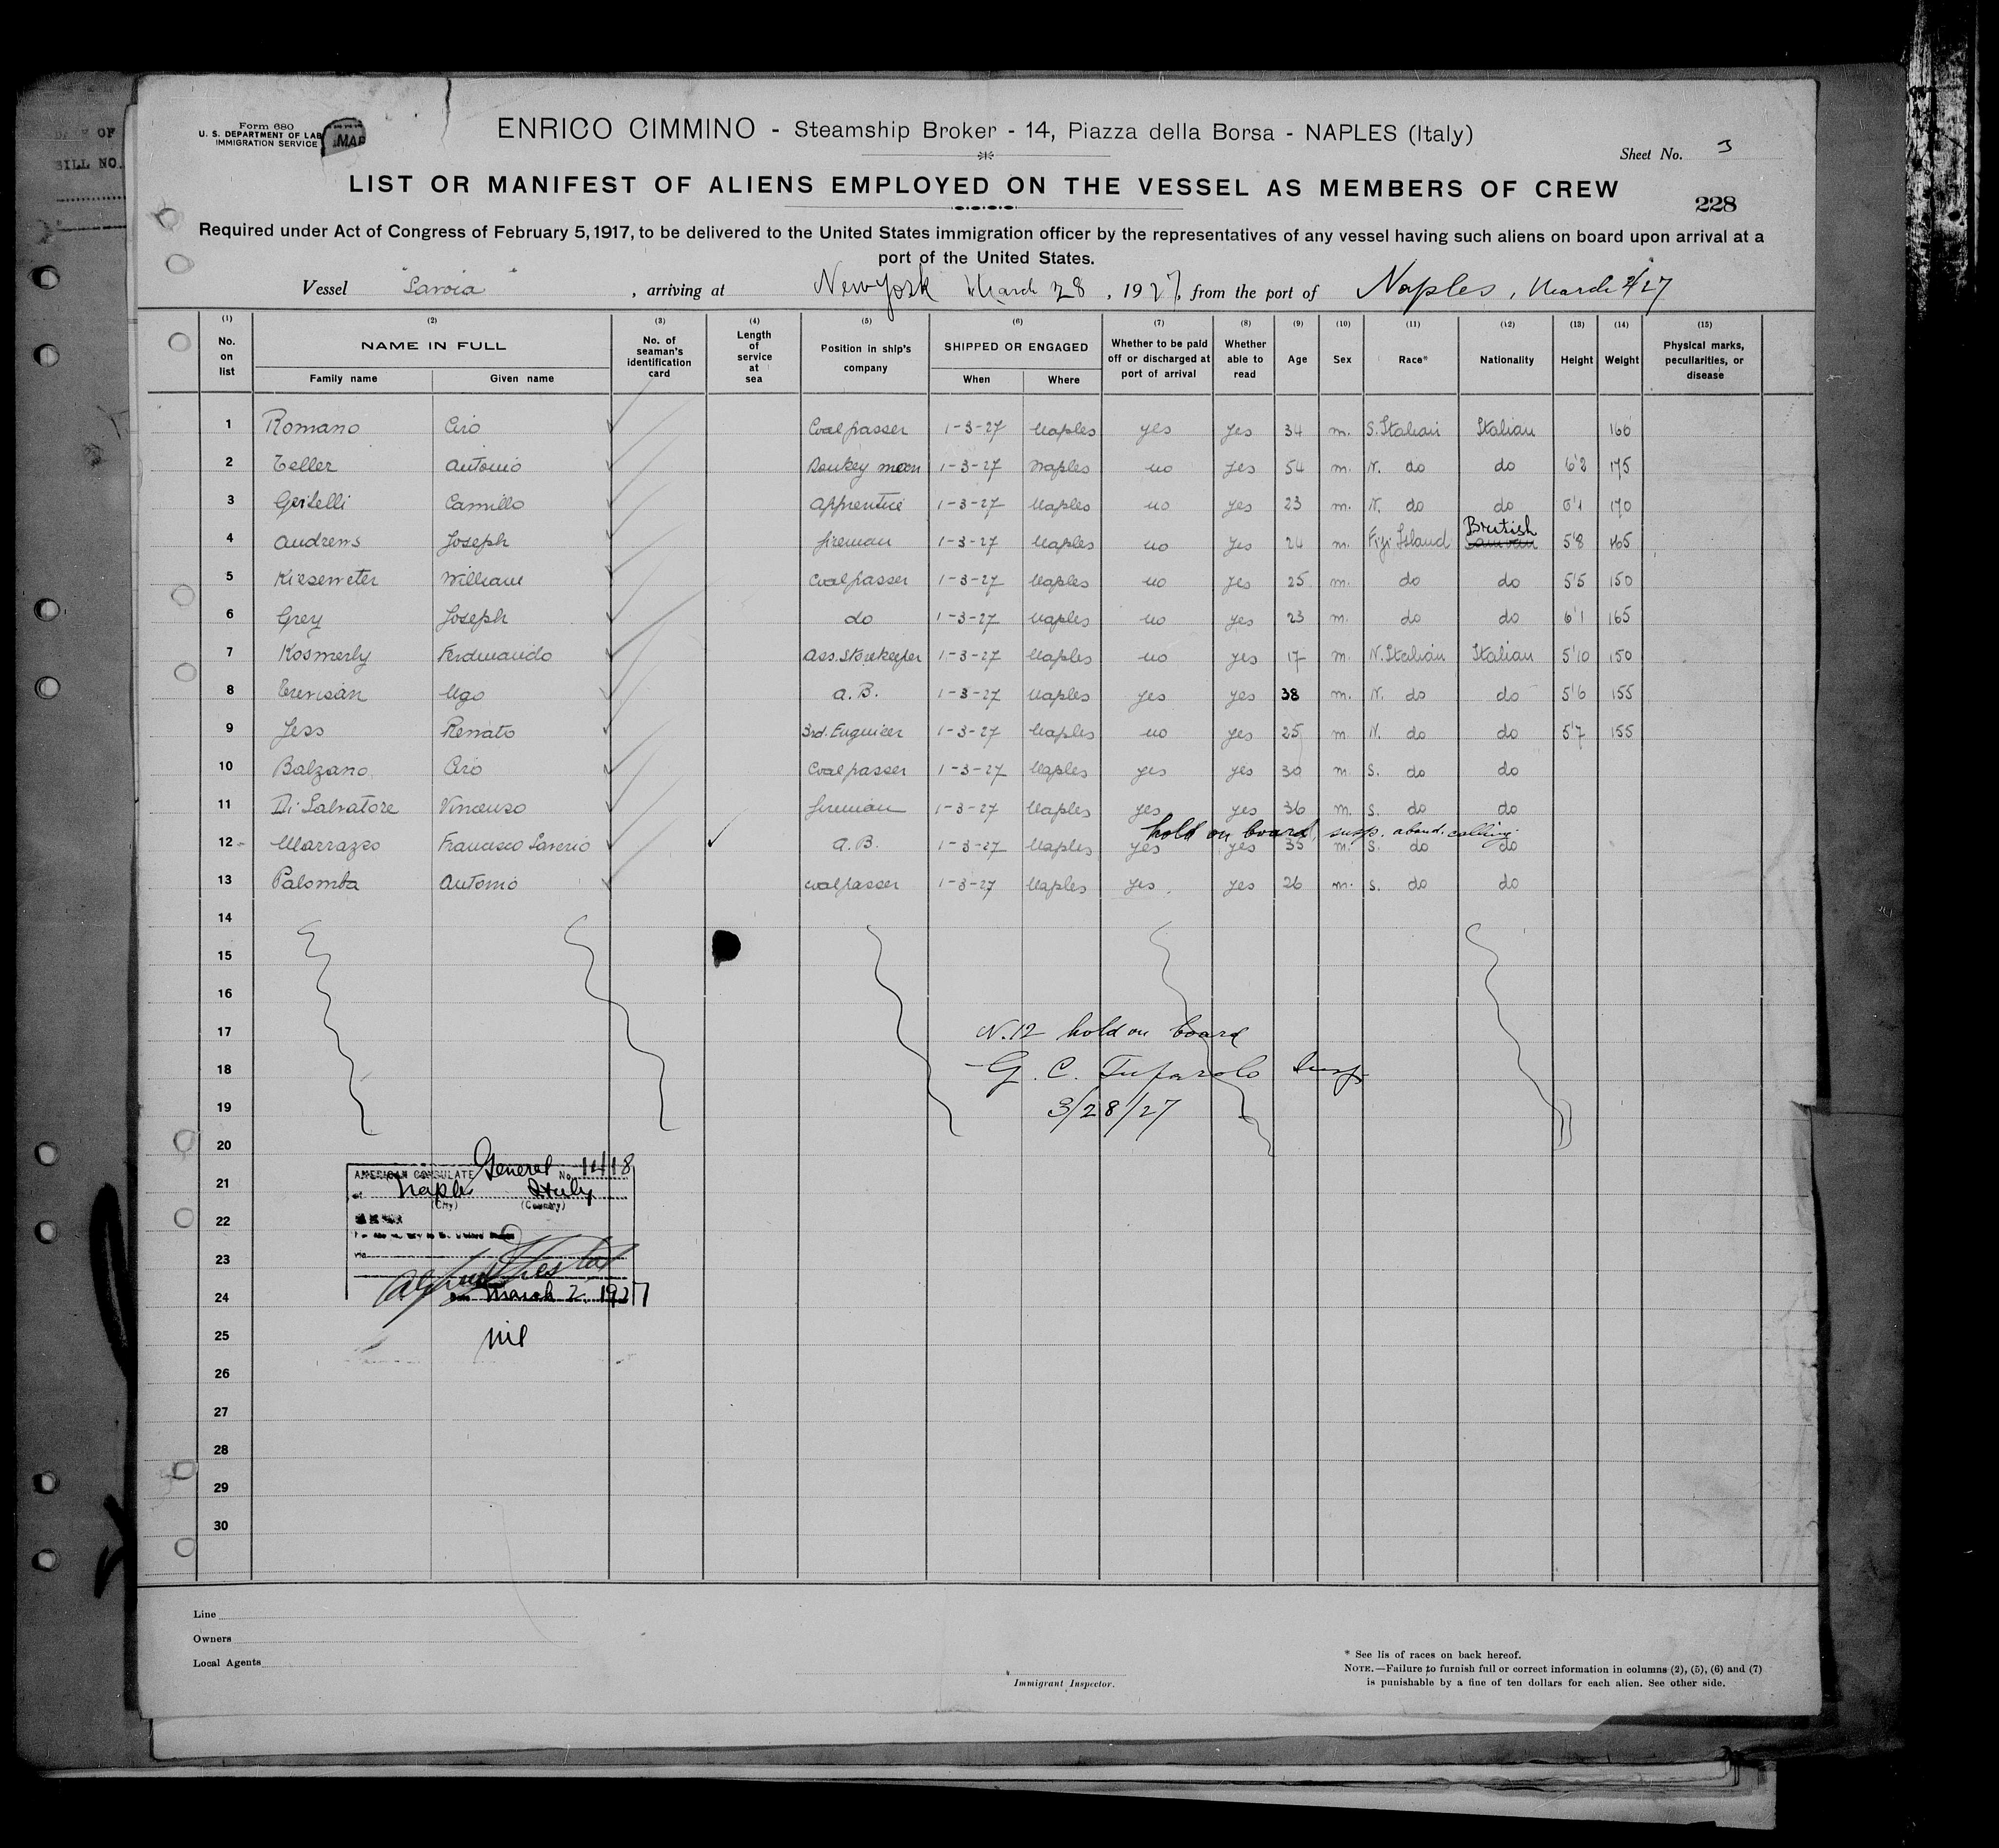 Form 680
U. S. DEPARTMENT OF LAB
IMMIGRATION SERVICE
ENRICO CIMMINO - Steamship Broker - 14, Piazza della Borsa - NAPLES (Italy)
Sheet No. 3
LIST OR MANIFEST OF ALIENS EMPLOYED ON THE VESSEL AS MEMBERS OF CREW
228
Required under Act of Congress of February 5, 1917, to be delivered to the United States immigration officer by the representatives of any vessel having such aliens on board upon arrival at a
port of the United States.
Vessel "Savoia", arriving at New York March 28, 1927, from the port of Naples, March 2/27
(1) No. on list (2) NAME IN FULL Family name Given name (3) No. of seaman's identification card (4) Length of service at sea (5) Position in ship's company (6) SHIPPED OR ENGAGED When Where (7) Whether to be paid off or discharged at port of arrival (8) Whether able to read (9) Age (10) Sex (11) Race* (12) Nationality (13) Height (14) Weight (15) Physical marks, peculiarities, or disease
1 Romano Ciro Coalpasser 1-3-27 Naples yes yes 34 m. S. Italian Italian 166
2 Zeller Antonio Donkey man 1-3-27 Naples no yes 54 m. N. do do 6'2 175
3 Camillo Apprentice 1-3-27 Naples no yes 23 m. N. do do 6'1 170
4 Andrews Joseph fireman 1-3-27 Naples no yes 24 m. Fiji Island British 5'8 165
5 Kieseweter William Coalpasser 1-3-27 Naples no yes 25 m. do do 5'5 150
6 Grey Joseph do 1-3-27 Naples no yes 23 m. do do 6'1 165
7 Kosmerly Ferdinando Ass. Storekeeper 1-3-27 Naples no yes 17 m. N. Italian Italian 5'10 150
8 Trevisan Ugo A.B. 1-3-27 Naples yes yes 38 m. N. do do 5'6 155
9 Jess Renato 3rd. Engineer 1-3-27 Naples no yes 25 m N. do do 5'7 155
10 Balzano Ciro Coalpasser 1-3-27 Naples yes yes 30 m S. do do
11 Di Salvatore Vincenzo fireman 1-3-27 Naples yes yes 36 m. S. do do
hold on board, susp. aband. calling.
12 Marrazzo Francesco Saverio A.B. 1-3-27 Naples yes yes 35 m. S. do do
13 Palomba Antonio coalpasser 1-3-27 Naples yes. yes 26 m. S. do do
14
15
16
17 N. 12 hold on board
18 G. C. Tufarolo Insp.
19 3/28/27
20
AMERICAN CONSULATE General No. 1418
21 at Naples Italy
(City) (Country)
22
23
24 March 2, 1927
25 nil
26
27
28
29
30
Line
Owners
Local Agents
Immigrant Inspector.
* See lis of races on back hereof.
NOTE.—Failure to furnish full or correct information in columns (2), (5), (6) and (7)
is punishable by a fine of ten dollars for each alien. See other side.